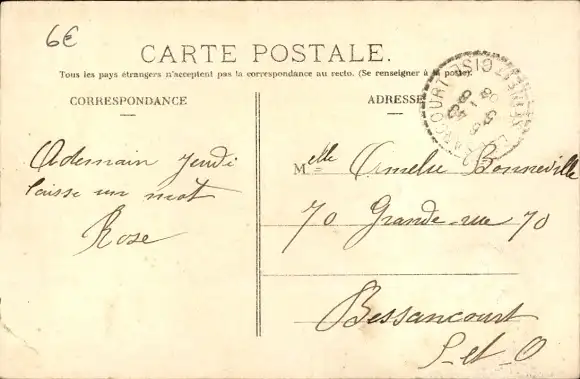 6€
CARTE POSTALE.
Tous les pays étrangers n'acceptent pas la correspondance au recto. (Se renseigner à la poste).
CORRESPONDANCE
ADRESSE
A demain jeudi
laisse un mot
Rose
Melle Amelie Bonneville
70 Grande-rue 70
Bessancourt
S-et-O